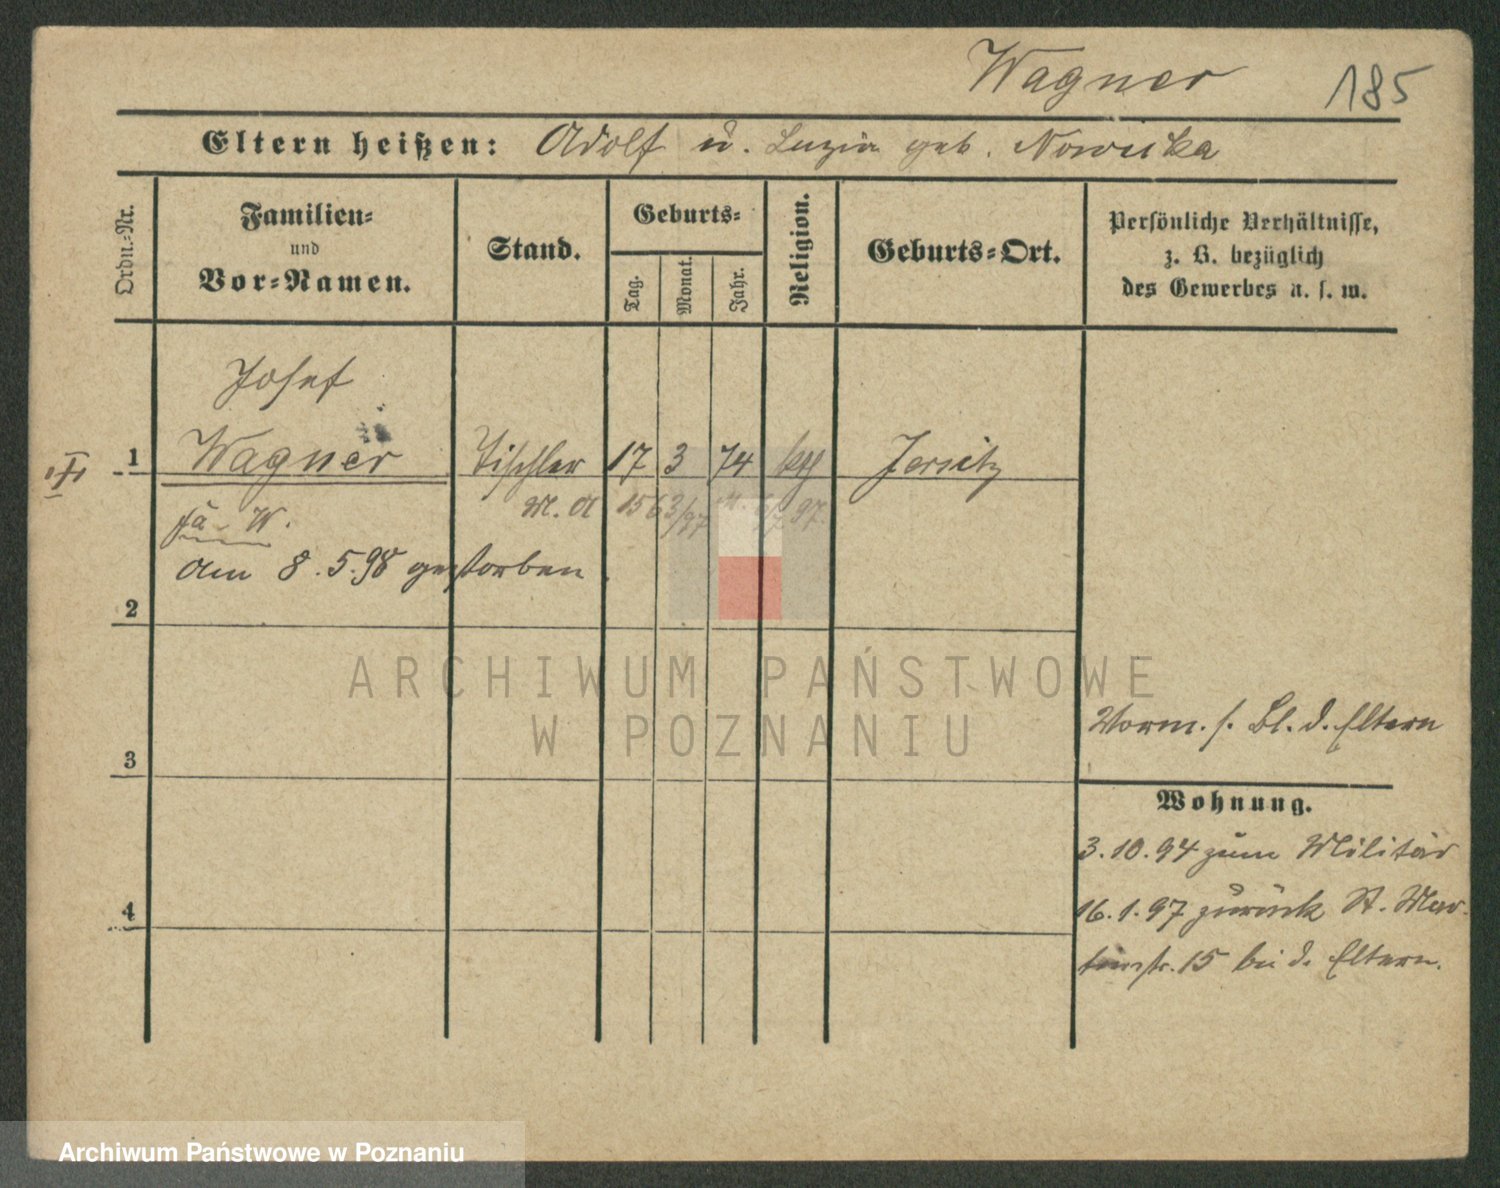 Wagner 185
Eltern heißen: Adolf u. Luzia geb. Nowicka
Ordn.-Nr.
Familien-
und
Vor-Namen.
Stand.
Geburts-
Tag.
Monat.
Jahr.
Religion.
Geburts-Ort.
Persönliche Verhältnisse,
z. B. bezüglich
des Gewerbes u. s. w.
Josef
1 Wagner Tischler 17 3 74 kth Jersitz
M. A 1563/97 97.
W.
am 8.5.98 gestorben.
2
ARCHIWUM PAŃSTWOWE
W POZNANIU
Vorm. s. Bl. d. Eltern
3
Wohnung.
3.10.94 zum Militär
4
16.1.97 zurück St. Mar-
tinstr. 15 bei d. Eltern.
Archiwum Państwowe w Poznaniu